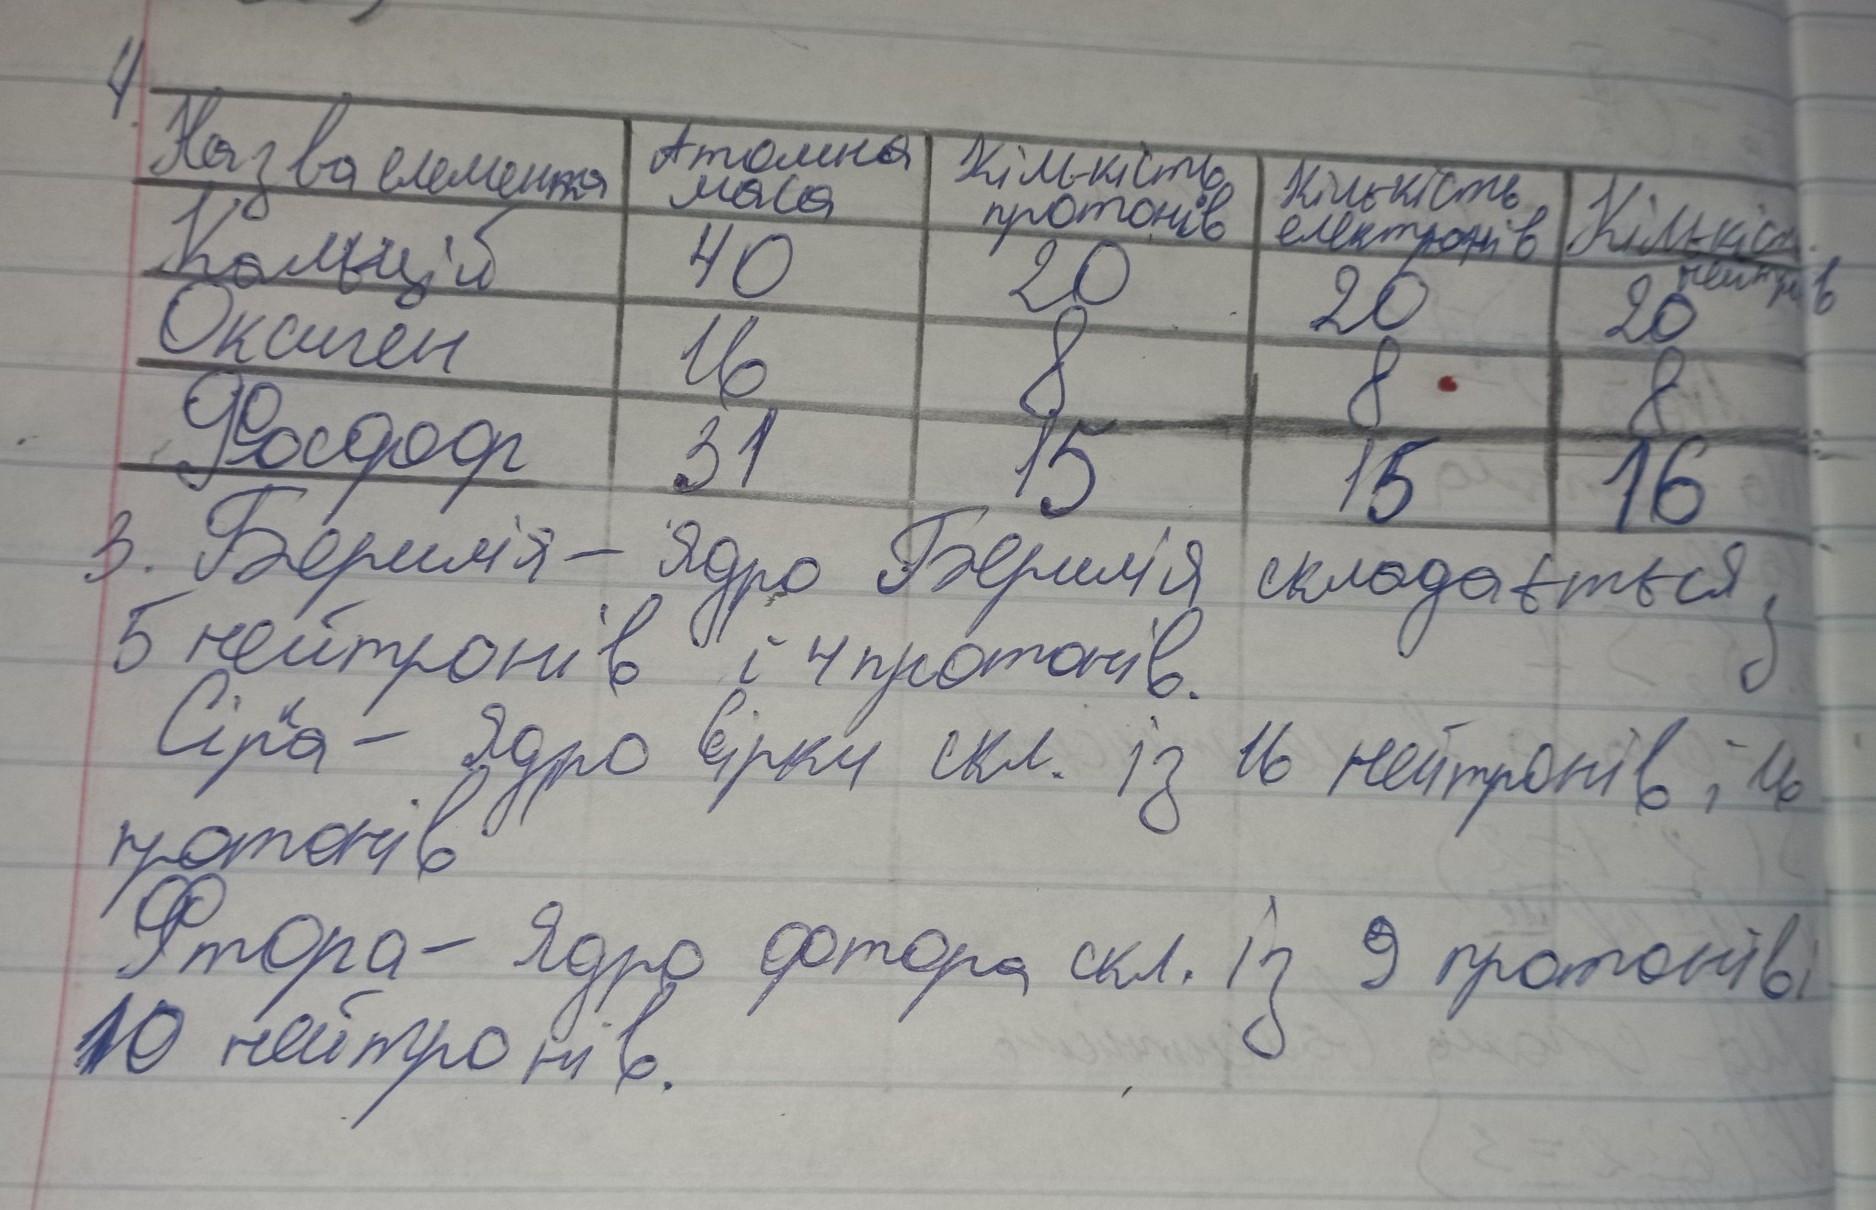 4.
Назва елемента Атомна маса Кількість протонів Кількість електронів Кількість нейтрнів
Кальцій 40 20 20 20
Оксиген 16 8 8 8
Фосфор 31 15 15 16
3. Берилія – Ядро Берилія складається з
5 нейтронів і 4 протонів.
Сірка – Ядро Сірки скл. із 16 нейтронів і 16
протонів
Фтора – Ядро фтора скл. із 9 протонів і
10 нейтронів.